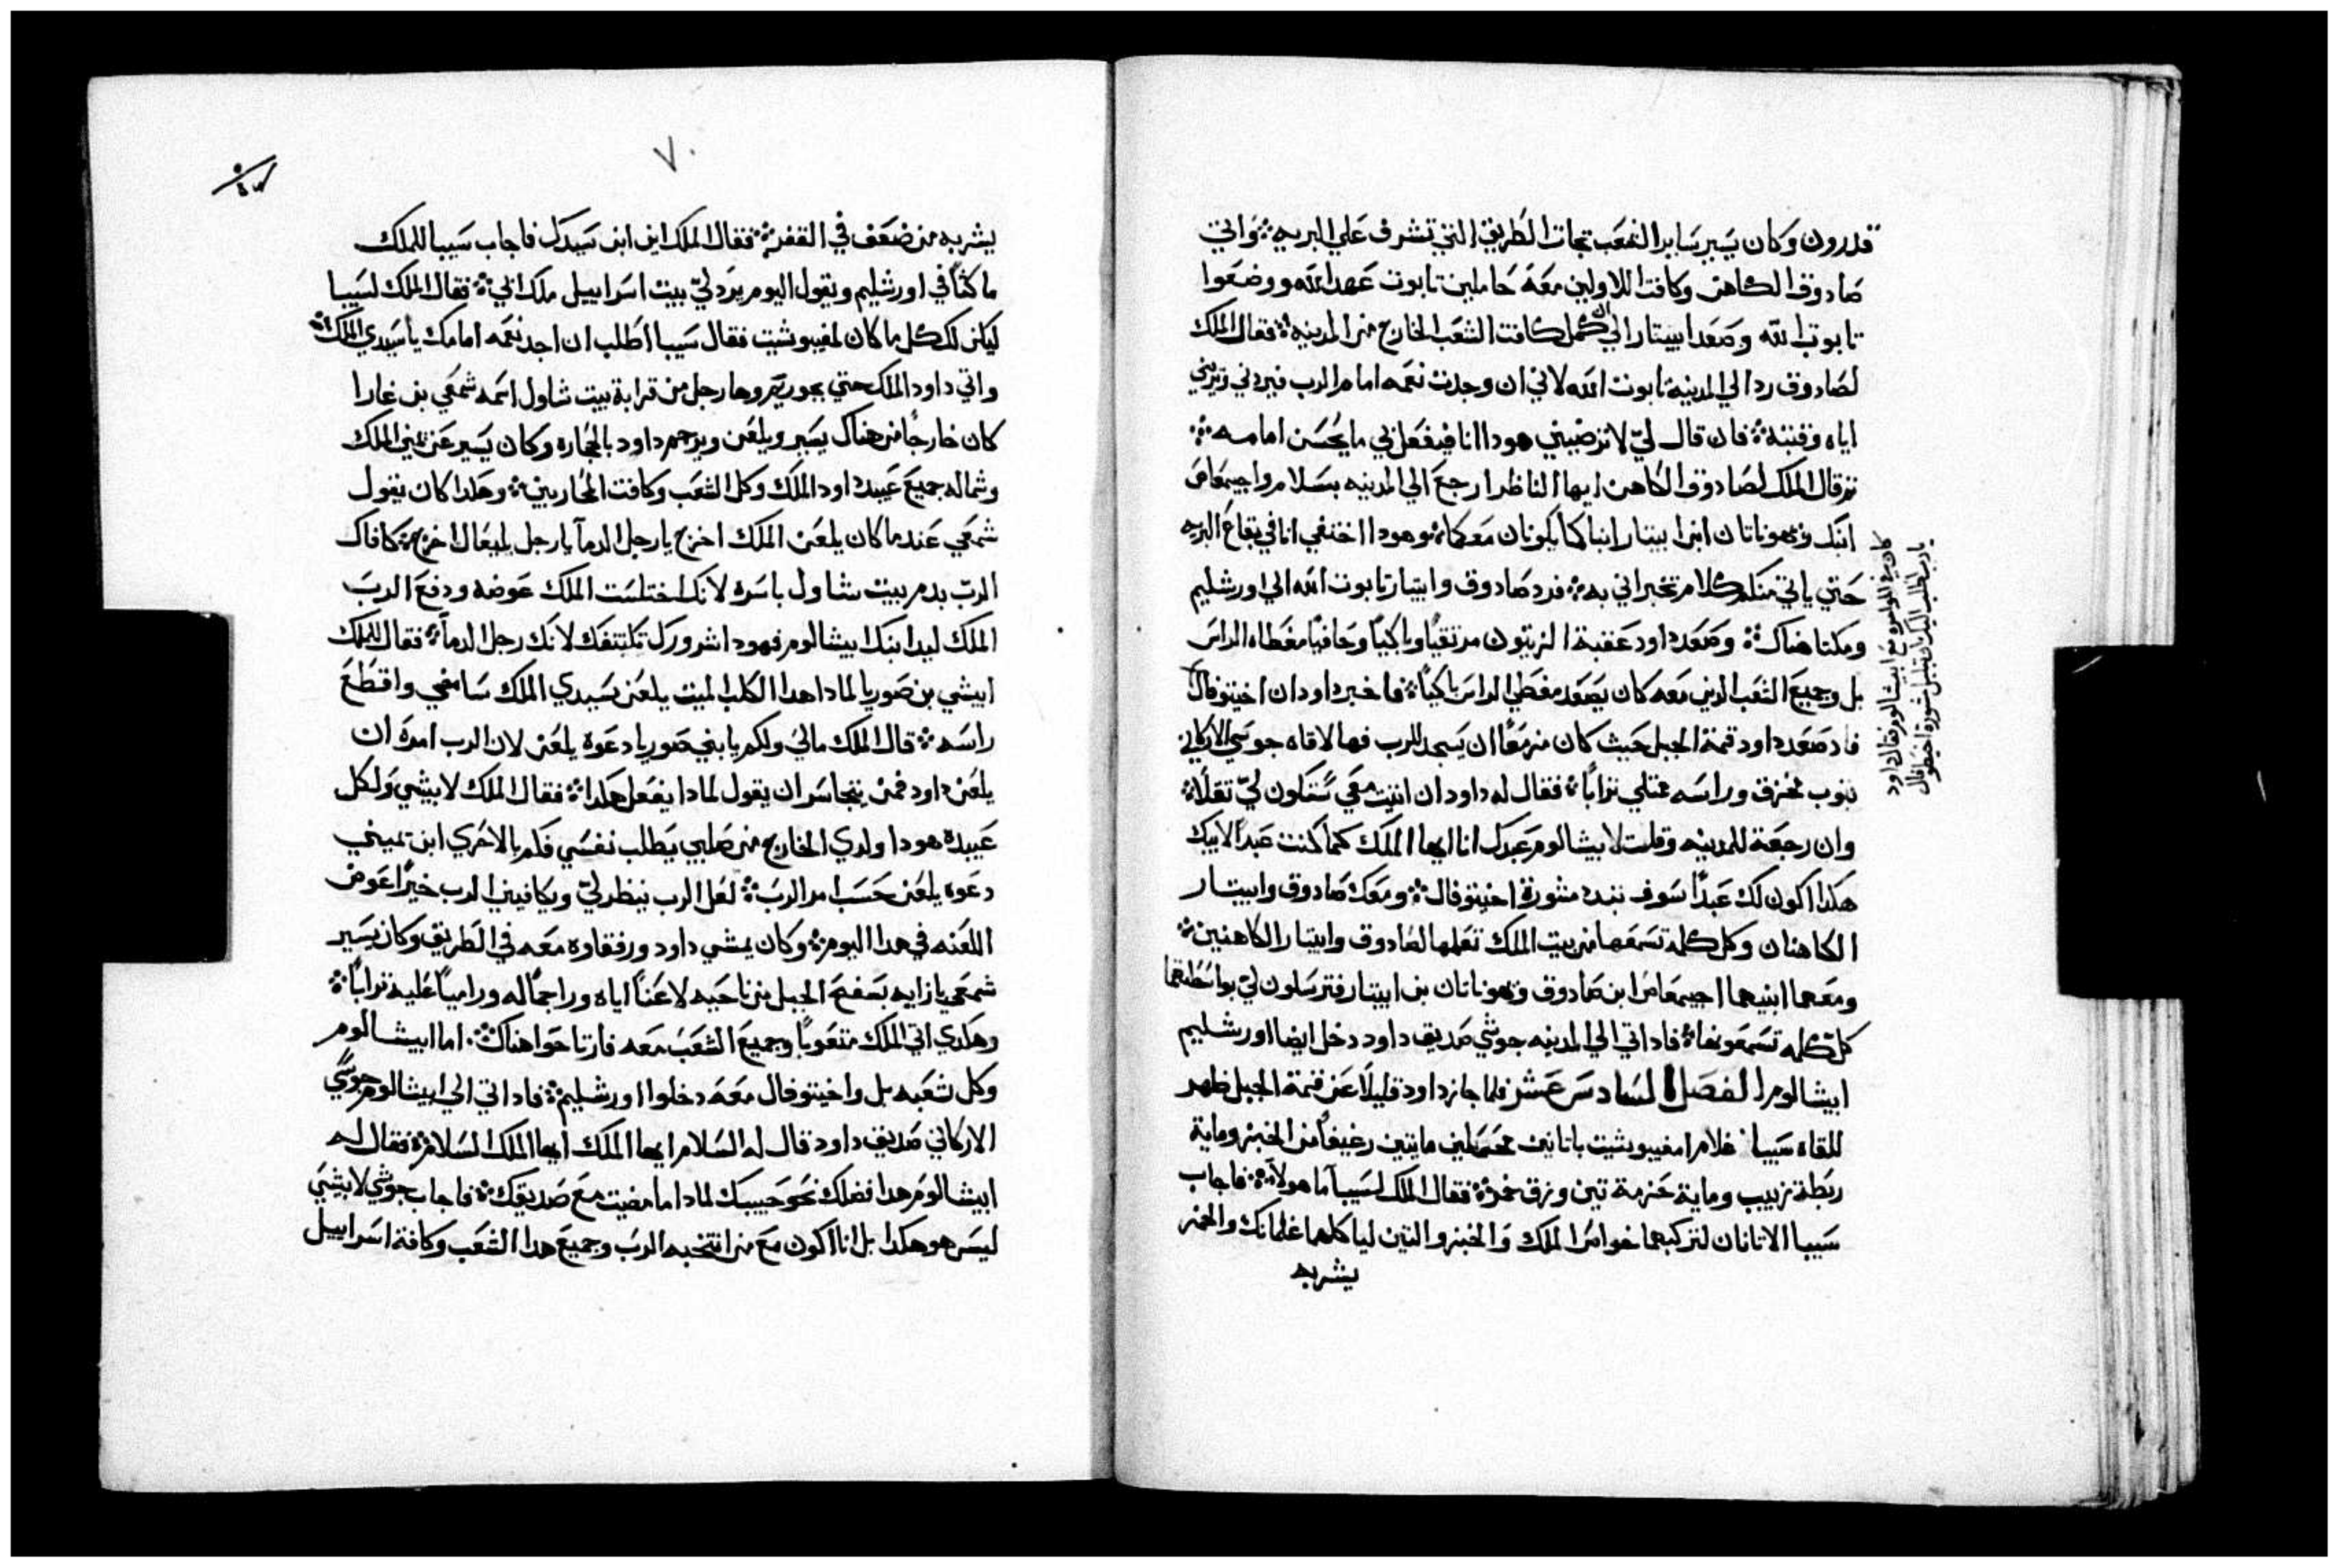 قدرون وكان يسير ساير الشعب تجات الطريق التي تشرف علي البريه وَاتي
صادوق الكاهن وكافت اللاويين معَهُ حاملين تابوت عَهد الله ووضعَوا
تابوت الله وصَعَد ابيتار الي ان كمل كافت الشعَب الخارج من المدينه فقال الملك
لصَادوق رد الي المدينه تابوت الله لاني ان وجدت نعَمه امام الرب فيردني ويريني
اياه وقبته فان قال ليّ لا ترضيني هودا انا فيفعَل بي ما يحُسَن امامه
ثم قال الملك لصَادوق الكاهن ايها الناظر ارجعَ الي المدينه بسَلام واجيمعَاص
ابنك ويهوناتان ابن ابيتار ابناكما يكونان معَكما وهودا اختفي انا في بقاعَ البريه
حَتي ياتي منكم كلام تخبراني به فرد صَادوق وابيتار تابوت الله الي اورشليم
ومكتا هناك وصَعَد داود عَقبة الزيتون مرتقيًا وباكيًا وحَافيًا مغَطاه الراس
بل وجميعَ الشعَب الدين معَه كان يَصَعَد مغَطي الراسَ باكيًا فاخبر داود ان اخيتوفال
فاد صَعَد داود قمة الجبل حَيث كان مزمعًَا ان يَسَجد للرب فها لاقاه جوسَي الاركاني
بتوب مخزق وراسَه ممتلي ترابًا فقال له داود ان اتيت معَي سَتكون ليّ تقلًا
وان رجعَة للمدينه وقلت لابيشالوم عَبدك انا ايها الملك كما كنت عَبدًا لابيك
هكدا اكون لك عَبدًا سَوف تبدد مشورة اخيتوفال ومعَك صَادوق وابيتار
الكاهنان وكل كلمة تسَمعَها من بيت الملك تعَلمها لصَادوق وابيتار الكاهنين
ومعَهما ابنيهما اجيمعَاص ابن صَادوق ويهوناتان بن ابيتار فترسَلون ليّ بواسَطتهما
كلّ كلمه تسَمعَونها فاد اتي الي المدينه جوشي صَديق داود دخل ايضا اورشليم
ابيشالوم الفصَل السَادسَ عَشر فلما جاز داود قليلًا عَن قمة الجبل ظهر
للقاه سَيبا غلام امفيبوشيت باتانين محَملين مايتين رغيفًا من الخبز وماية
ربَطة زبيب وماية حَزمة تين وزق خمر فقال الملك لسَيبا ما هولاء فاجاب
سَيبا الاتانان لتركبهما خواصَ الملك وَالخبز والتين لياكلهما غلمانك والخمر
يشربه
كان في المواموه معَ ابيشالوم فقال داود
يا رب اطلب اليك ان تبلبل مشورة اخيطوفال
٧٠
يشربه من ضعَف في القفر فقال الملك اين ابن سَيدك فاجاب سَيبا للملك
ماكثًا في اورشليم ويقول اليوم يَرَد ليّ بيت اسَراييل ملك ابيّ فقال الملك لسَيبا
ليكن لك كل ما كان لمفيبوشيت فقال سَيبا اطلب ان اجد نعَمه امامك يا سَيدي الملك
واتي داود الملك حتي بحوريم وها رجل من قرابة بيت شاول اسَمه شمعَي بن غارا
كان خارجًا من هناك يسَير ويلعَن ويرجم داود بالحجاره وكان يسَير عَن يمني الملك
وشماله جميعَ عَبيد داود الملك وكل الشعَب وكافت المحاربين وهَكدا كان يقول
شمعَي عَندما كان يلعَن الملك اخرج يا رجل الدمآ يا رجل بليعَال اخرج كافاك
الربّ بدم بيت شاول باسَره لانك اختلسَت الملك عَوضه ودفعَ الربَ
الملك ليد ابنك ابيشالوم فهودا شرورك تكتنفك لانك رجل الدمآ فقال للملك
ابيشي بن صَوريا لمادا هدا الكلب الميت يلعَن سَيدي الملك سَامضي واقطَعَ
راسَه قال الملك ماليَ ولكم يا بني صَوريا دعَوه يلعَن لان الرب امره ان
يلعَن داود فمن يتجاسَر ان يقول لمادا يفعَل هَكدا فقال الملك لابيشي ولكل
عَبيده هودا ولدي الخارج من صَلبي يَطلب نفسَي فكم بالاحَري ابن يميني
دعَوه يلعَن حَسَب امر الربَ لعَل الرب ينظر ليّ ويكافيني الرب خيرًا عَوض
اللعَنه في هدا اليوم وكان يمشي داود ورفقاوه معَه في الطريق وكان يسَير
شمعَي بازايه بَسَفحَ الجبل من ناحَيه لاعَنًا اياه وراجمًا له وراميًا عَليه ترابًا
وهَكدي اتي الملك متعَوبًا وجميعَ الشعَبُ معَه فارتاحَوا هناك اما ابيشالوم
وكل شعَبه بل واخيتوفال معَهَ دخلوا اورشليم فاد اتي الي ابيشالوم جوشَي
الاركاني صَديق داود قال له السَلام ايها الملك ايها الملك السَلام فقال له
ابيشالوم هدا فضلك نحَو حَبيبك لمادا ما مضيت معَ صَديقك فاجاب جوشي لابيشي
ليسَ هو هكدا بل انا اكون معَ من انتخبه الربَ وجميعَ هدا الشعَب وكافة اسَراييل